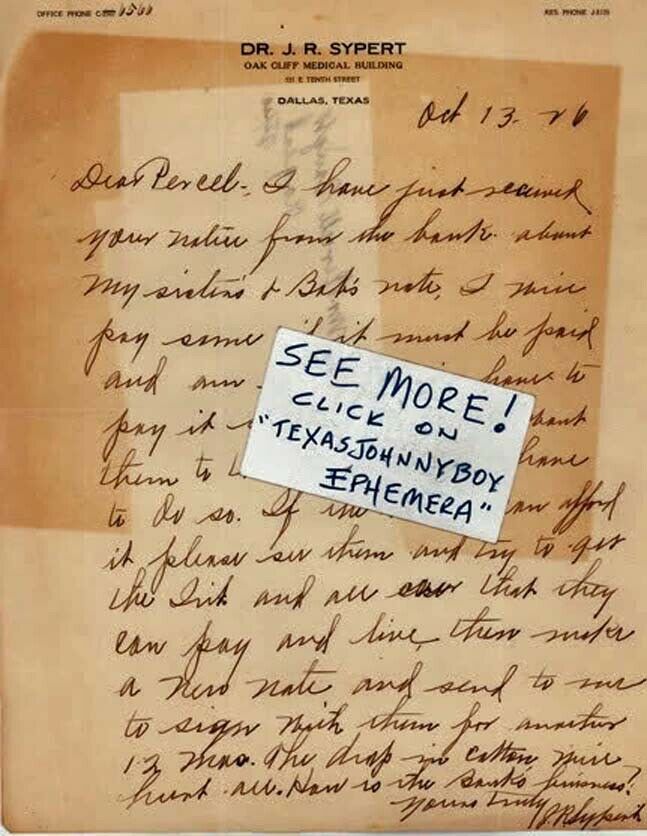 OFFICE PHONE 1561
RES. PHONE
DR. J. R. SYPERT
OAK CLIFF MEDICAL BUILDING
E TENTH STREET
DALLAS, TEXAS
Oct 13 - 26
Dear Percel - I have just received
your notice from the bank about
my sister's & Bob's note, I will
pay same if it must be paid
and am have to
pay it want
them to have
to do so. If afford
it please see them and try to get
the Int and all over that they
can pay and live, then make
a new note and send to me
to sign with them for another
12 mos. The drop in cotton will
hurt all. How is the Banks business?
Yours truly
J R Sypert
SEE MORE!
CLICK ON
"TEXASJOHNNYBOY
EPHEMERA"